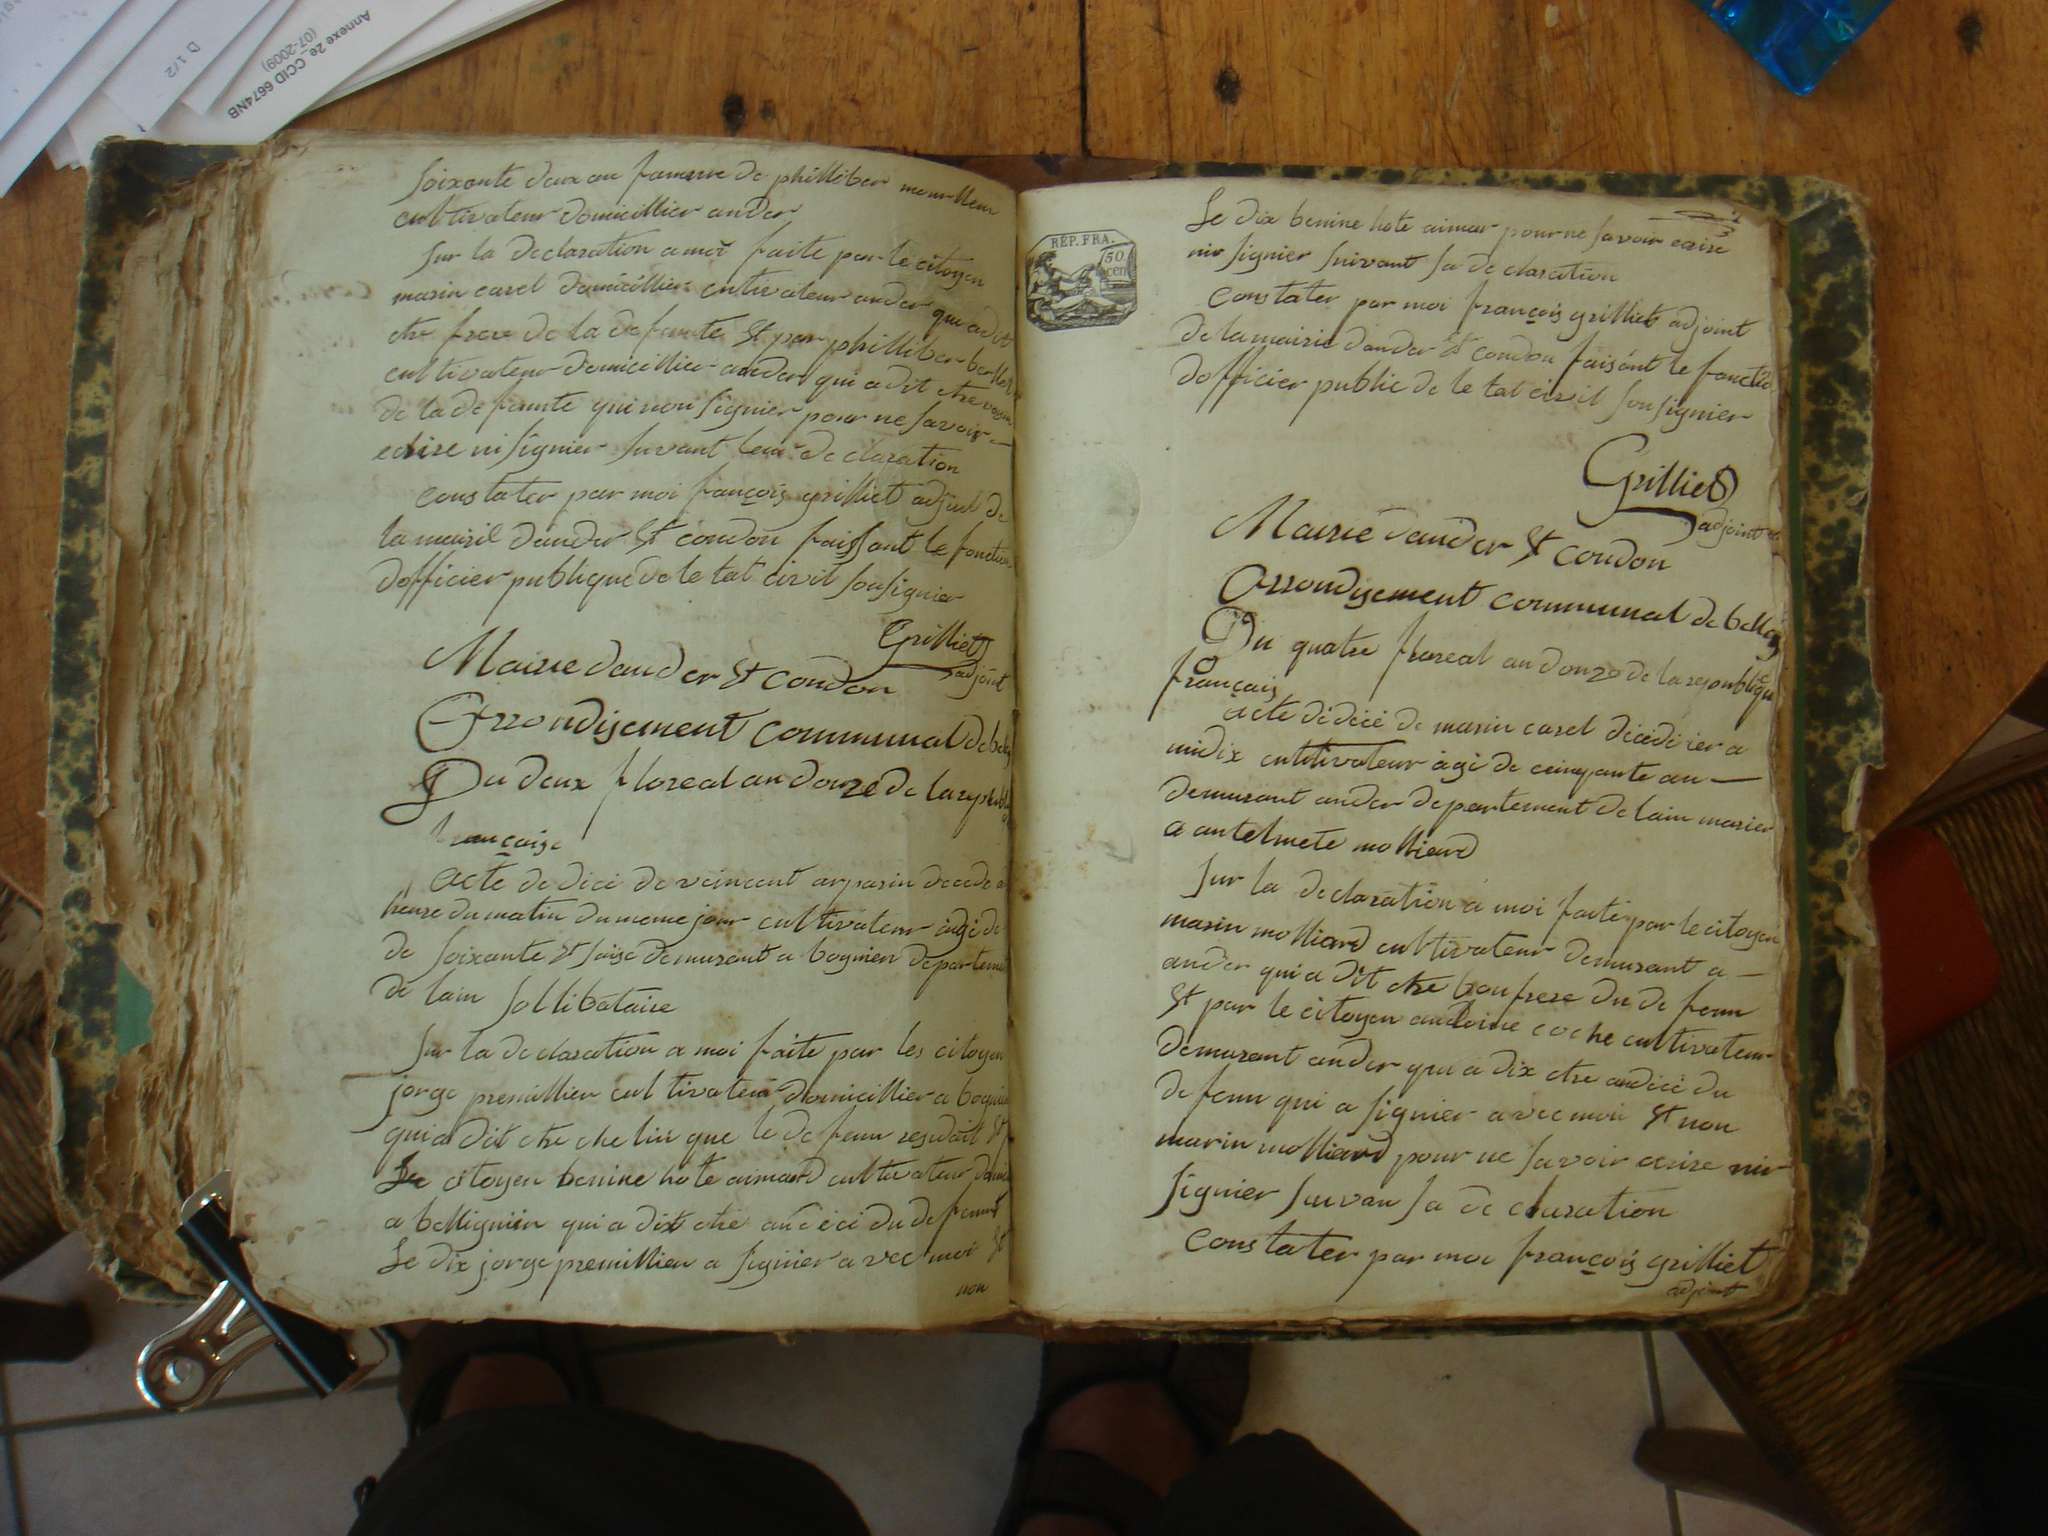 Annexe 2e_CCID 6674NB
(07-2009)
D 1/2
soixante deux an famme de philliber meurlleur
cultivateur domicillier ander
sur la declaration a moi faite par le citoyen
marin carel domicillier cultivateur ander qui a dit
etre frere de la defunte et par philliber
cultivateur domicillier ander qui a dit etre voisin
de la defunte qui non signier pour ne savoir
ecrire ni signier suivant leur declaration
constater par moi françois grilliet adjoint de
la mairie dander et condon faissant le fonction
dofficier publique de le tat civil sousignier
Grilliet
adjoint
Mairie dander et condon
Arrondisement communal de
Du deux floreal an douze de la republi
francaise
acte de dicé de veincent arparin decede a
heure du matin du meme jour cultivateur agé de
de soixante et saise demurant a bognien departement
de lain sollibataire
sur la declaration a moi faite par les citoyen
jorge premillieu cultivateur domicillier a
qui a dit etre che lui que le defunu resudait et
Le citoyen benine hote aimard cultivateur
a belligniin qui a dix etre audéci du defunt
Le dix jorge premillieu a signier avec moi et
non
RÉP. FRA.
50
cen
Le dix benine hote aimar pour ne savoir ecrire
nir signier suivant sa declaration
constater par moi françois grilliet adjoint
de la mairie dander et condon faisant le fonction
dofficier public de le tat civil sousignier
Grilliet
adjoint
Mairie dander et condon
Arrondisement communal de belley
Du quatre floreal an douze de la republique
français
acte de dicé de marin carel décédé ier a
midix cultivateur agé de cinquante an
demurant ander departement de lain marier
a antelmete molliard
sur la declaration a moi faite par le citoyen
marin molliard cultivateur demurant a
ander qui a dit etre beau frere du defunu
et par le citoyen andoine coche cultivateur
demurant ander qui a dix etre audicé du
defunu qui a signier avec moi et non
marin molliard pour ne savoir ecrire nir
signier suivan sa declaration
constater par moi françois grilliet
adjoint